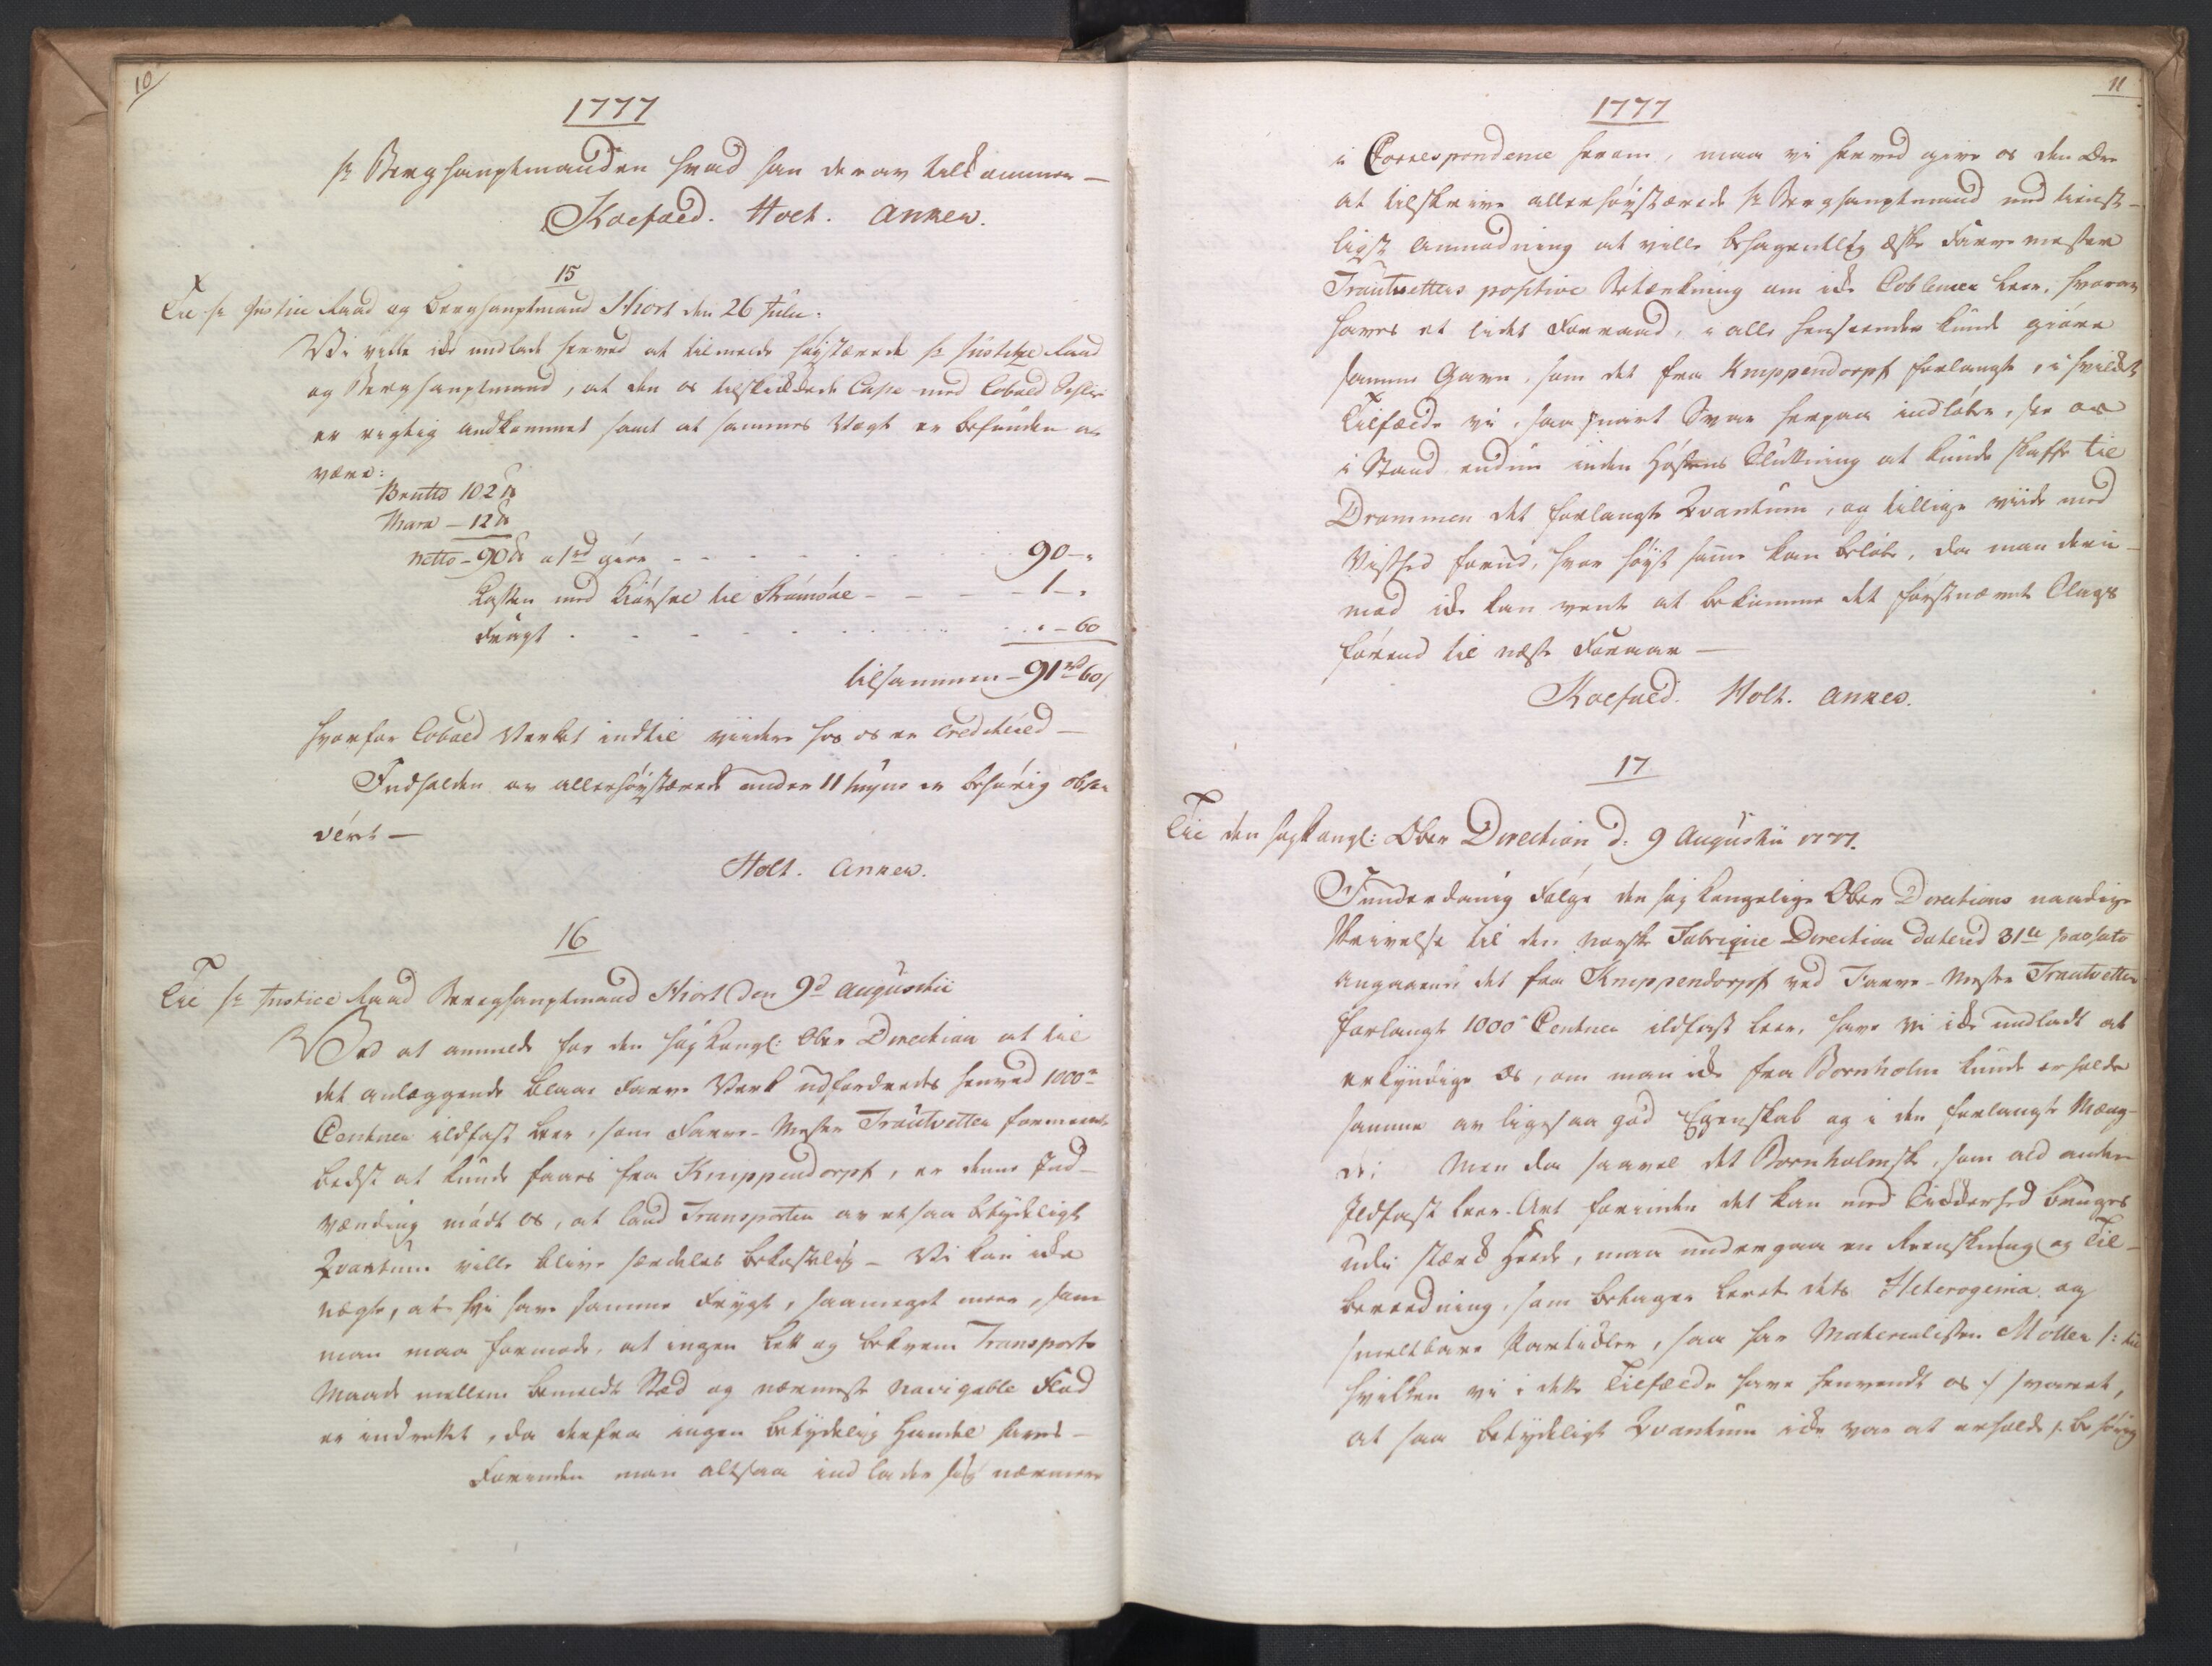 10
1777
hr Berghauptmanden hvad han derav tilkommer —
Koefoed. Holt. Anker.
15
Til hr Justice Raad og Berghauptmand Hiort den 26 Julii.
Vi ville ike undlade herved at tilmelde høystærede hr Justitze Raad
og Berghauptmand, at den os tilskikkede Casse med Cobold Schlig
er rigtig ankommet samt at sammes Vægt er befunden at
være:
Brutto 102 ℔
Thara — 12 ℔
netto — 90 ℔ a 1 rd giör - - - 90 - „
Kasten med Kiörsel til Strömsöe - - - - 1 - „
Fragt - - - „ - 60
tilsammen - 91 rd 60 s
hvorfor Cobold Verket indtil viidere hos os er crediteered —
Indholden av allerhøystærede under 11 hujus er behørig obser
veret —
Holt. Anker.
16
Til hr Justice Raad Berghauptmand Hiort den 9d Augustii
Ved at anmelde for den høy Kongl: Ober Direction at til
det anlæggende blaae Farve Verk udfordredes henved 1000de
Centner ildfast Leer, som Farve-Mester Trautvetter formeente
bedst at kunde faaes fra Knippendorpf, er denne Ind-
vending mødt os, at land Transporten av et saa betydeligt
Qvantum ville blive særdeles bekostelig — Vi kan ike
negte, at vi have samme Frygt, saameget meere, som
man maa formode, at ingen let og bekvem Transports
Maade mellem bemeldte Stæd og nærmeste navigable Flod
er indrettet, da derfra ingen betydelig Handel haves —
Forinden man altsaa indlader sig nærmere
11
1777
i Correspondence herom, maa vi herved give os den Ære
at tilskrive allerhøystærede hr Berghauptmand med tienst-
ligst Anmodning at ville behagentlig æske Farve mester
Trautvetters positive Betænkning om ike Coblenzer Leer, hvorav
haves et lidet Forraad, i alle henseender kunde giøre
samme Gavn, som det fra Knippendorpf forlangte, i hvilket
Tilfælde vi, saa snart Svar herpaa indløber, see os
i Stand endnu inden Høstens Slutning at kunde skaffe til
Drammen det forlangte Qvantum, og tillige viide med
Vished forud, hvor høyt samme kan beløbe, da man deri-
mod ike kan vente at bekomme det førstnævnte Slags
førend til næste Foraar —
Koefoed. Holt. Anker.
17
Til den høy Kongl: Ober Direction d. 9 Augustii 1777.
I underdanig Følge den høy Kongelige Ober Directions naadige
Skrivelse til den norske Fabrique Direction dateret 31te passato
angaaende det fra Knippendorpf ved Farve-Mester Trautvetter
forlangte 1000de Centner ildfast Leer, have vi ike undladt at
erkyndige os, om man ike fra Bornholm kunde erholde
samme av ligesaa god Egenskab og i den forlangte Mæng-
de; Men da saavel det Bornholmske, som ald anden
Ildfast Leer-Art forinden det kan med Sikkerhed bruges
udi stærk Heede, maa undergaa en Rænskning og Til-
beredning, som betager Leeret dets Heterogenia og
smeltbare Partikler, saa har Materialisten Møller /: til
hvilken vi i dette Tilfælde have henvendt os :/ svaret,
at saa betydeligt Qvantum ike var at erholde /: behørig